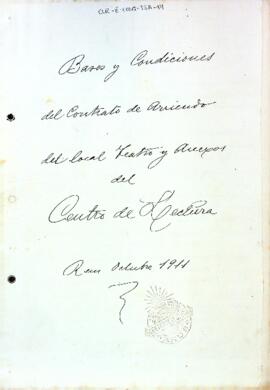 Bases y Condiciones
del Contrato de Arriendo
del local Teatro y Anexos
del
Centro de Lectura
Reus Octubre 1911